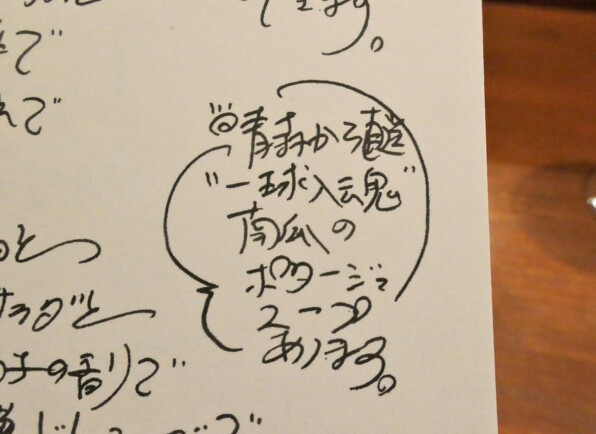 で
れで
と
サラダと
子の香りで
ます。
青森から直送
"一球入魂"
南瓜の
ポタージュ
スープ
あります。